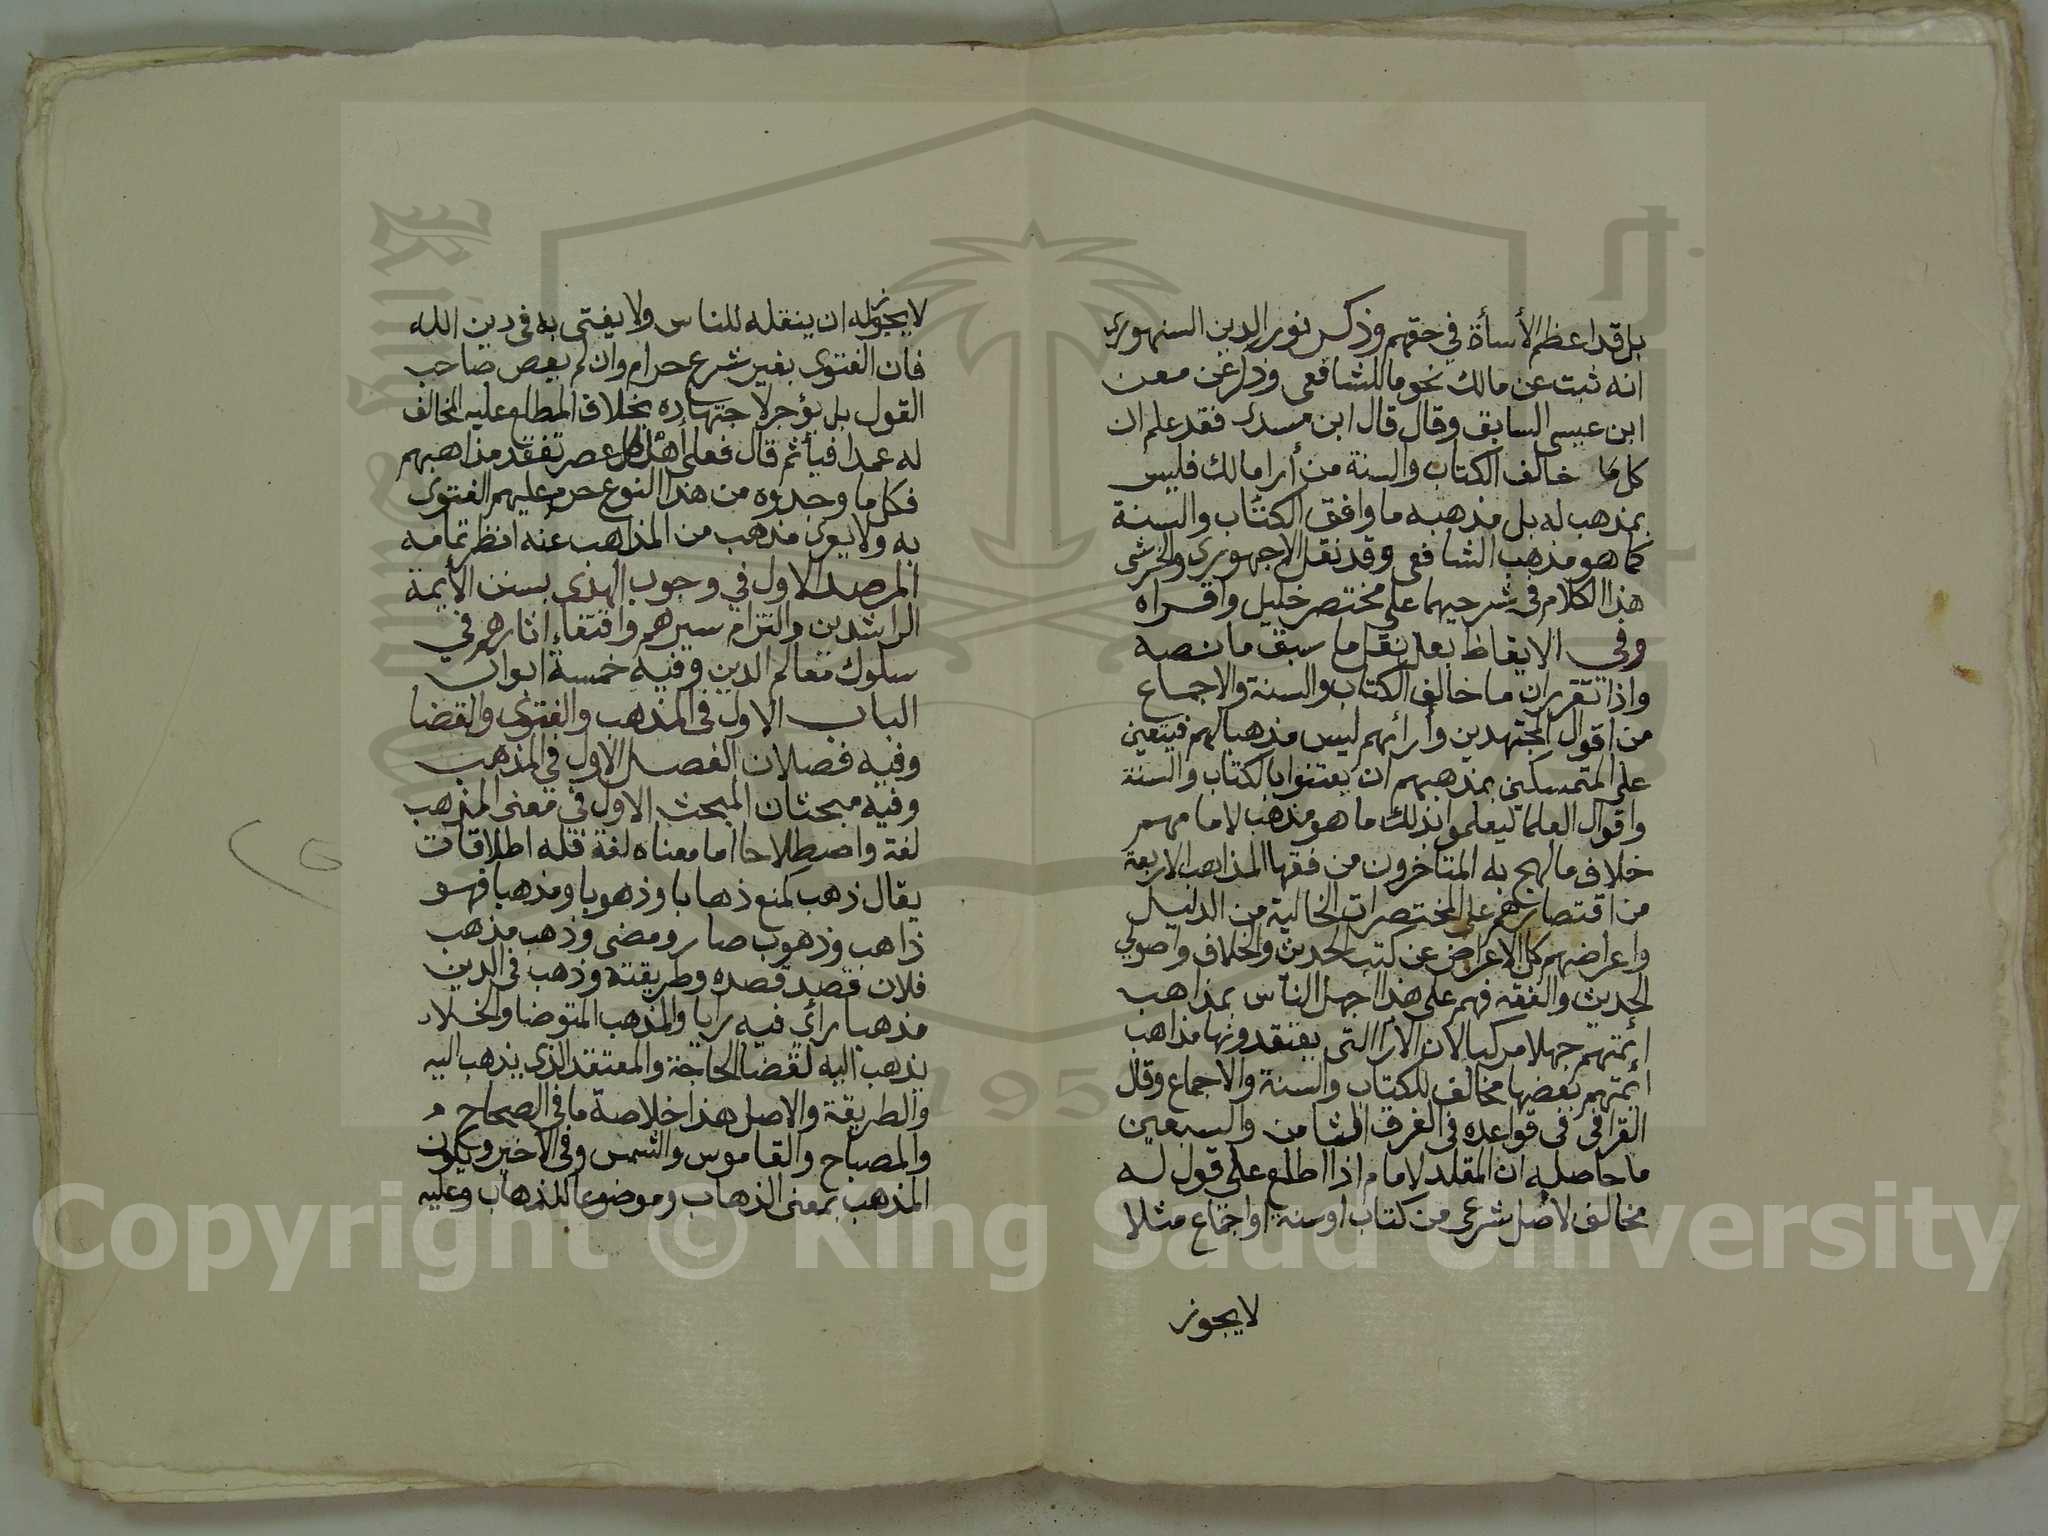 بل قد اعظم الأسأة في حقهم وذكر نور الدين السنهوري
انه ثبت عن مالك نحو ما للشافعي وذا عن معن
ابن عيسى السابق وقال قال ابن مسدي فقد علم ان
كل ما خالف الكتاب والسنة من أرا مالك فليس
بمذهب له بل مذهبه ما وافق الكتاب والسنة
كما هو مذهب الشافعي وقد نقل الاجهوري والخرشي
هذا الكلام في شرحيهما على مختصر خليل واقراه
وفي الايقاظ بعد نقل ما سبق ما نصه
واذا تقرر ان ما خالف الكتاب والسنة والاجماع
من اقول المجتهدين وأرائهم ليس مذهبا لهم فيتعين
على المتمسكين بمذهبهم ان يعتنوا بالكتاب والسنة
واقوال العلما ليعلموا بذلك ما هو مذهب لامامهم
خلاف ما لهج به المتاخرون من فقها المذاهب الاربعة
من اقتصارهم على المختصرات الخالية من الدليل
واعراضهم كل الاعراض عن كتب الحديث والخلاف واصولي
الحديث والفقه فهم على هذا اجهل الناس بمذاهب
ائمتهم جهلا مركبا لان الارا التي يعتقدونها مذاهب
ائمتهم بعضها مخالف للكتاب والسنة والاجماع وقال
القرافي في قواعده في الفرق الثامن والسبعين
ما حاصله ان المقلد لامام اذا اطلع على قول له
مخالف لأصل شرعي من كتاب او سنة او اجماع مثلا
لايجوز
لايجوز له ان ينقله للناس ولا يفتى به في دين الله
فان الفتوى بغير شرع حرام وان لم يعص صاحب
القول بل يؤجر لاجتهاده بخلاف المطلع عليه المخالف
له عمدا فيأثم قال فعلى أهل كل عصر تفقد مذاهبهم
فكل ما وجدوه من هذا النوع حرم عليهم الفتوى
به ولا يعرى مذهب من المذاهب عنه انظر تمامه
المرصد الاول في وجوب الهدى بسنن الأيمة
الراشدين والتزام سيرهم واقتفاء اثارهم في
سلوك معالم الدين وفيه خمسة ابواب
الباب الاول في المذهب والفتوى والقضا
وفيه فصلان الفصل الاول في المذهب
وفيه مبحثان المبحث الاول في معنى المذهب
لغة واصطلاحا اما معناه لغة فله اطلاقات
يقال ذهب كمنع ذهابا وذهوبا ومذهبا فهو
ذاهب وذهوب صار ومضى وذهب مذهب
فلان قصد قصده وطريقته وذهب في الدين
مذهبا رائ فيه رايا والمذهب المتوضا والخلاء
يذهب اليه لقضا الحاجة والمعتقد الذي يذهب اليه
والطريقة والاصل هذا خلاصة ما في الصحاح
والمصباح والقاموس والشمس وفي الاخير ويكون
المذهب بمعنى الذهاب وموضوعا للذهاب وعليه
Copyright © King Saud University
1957